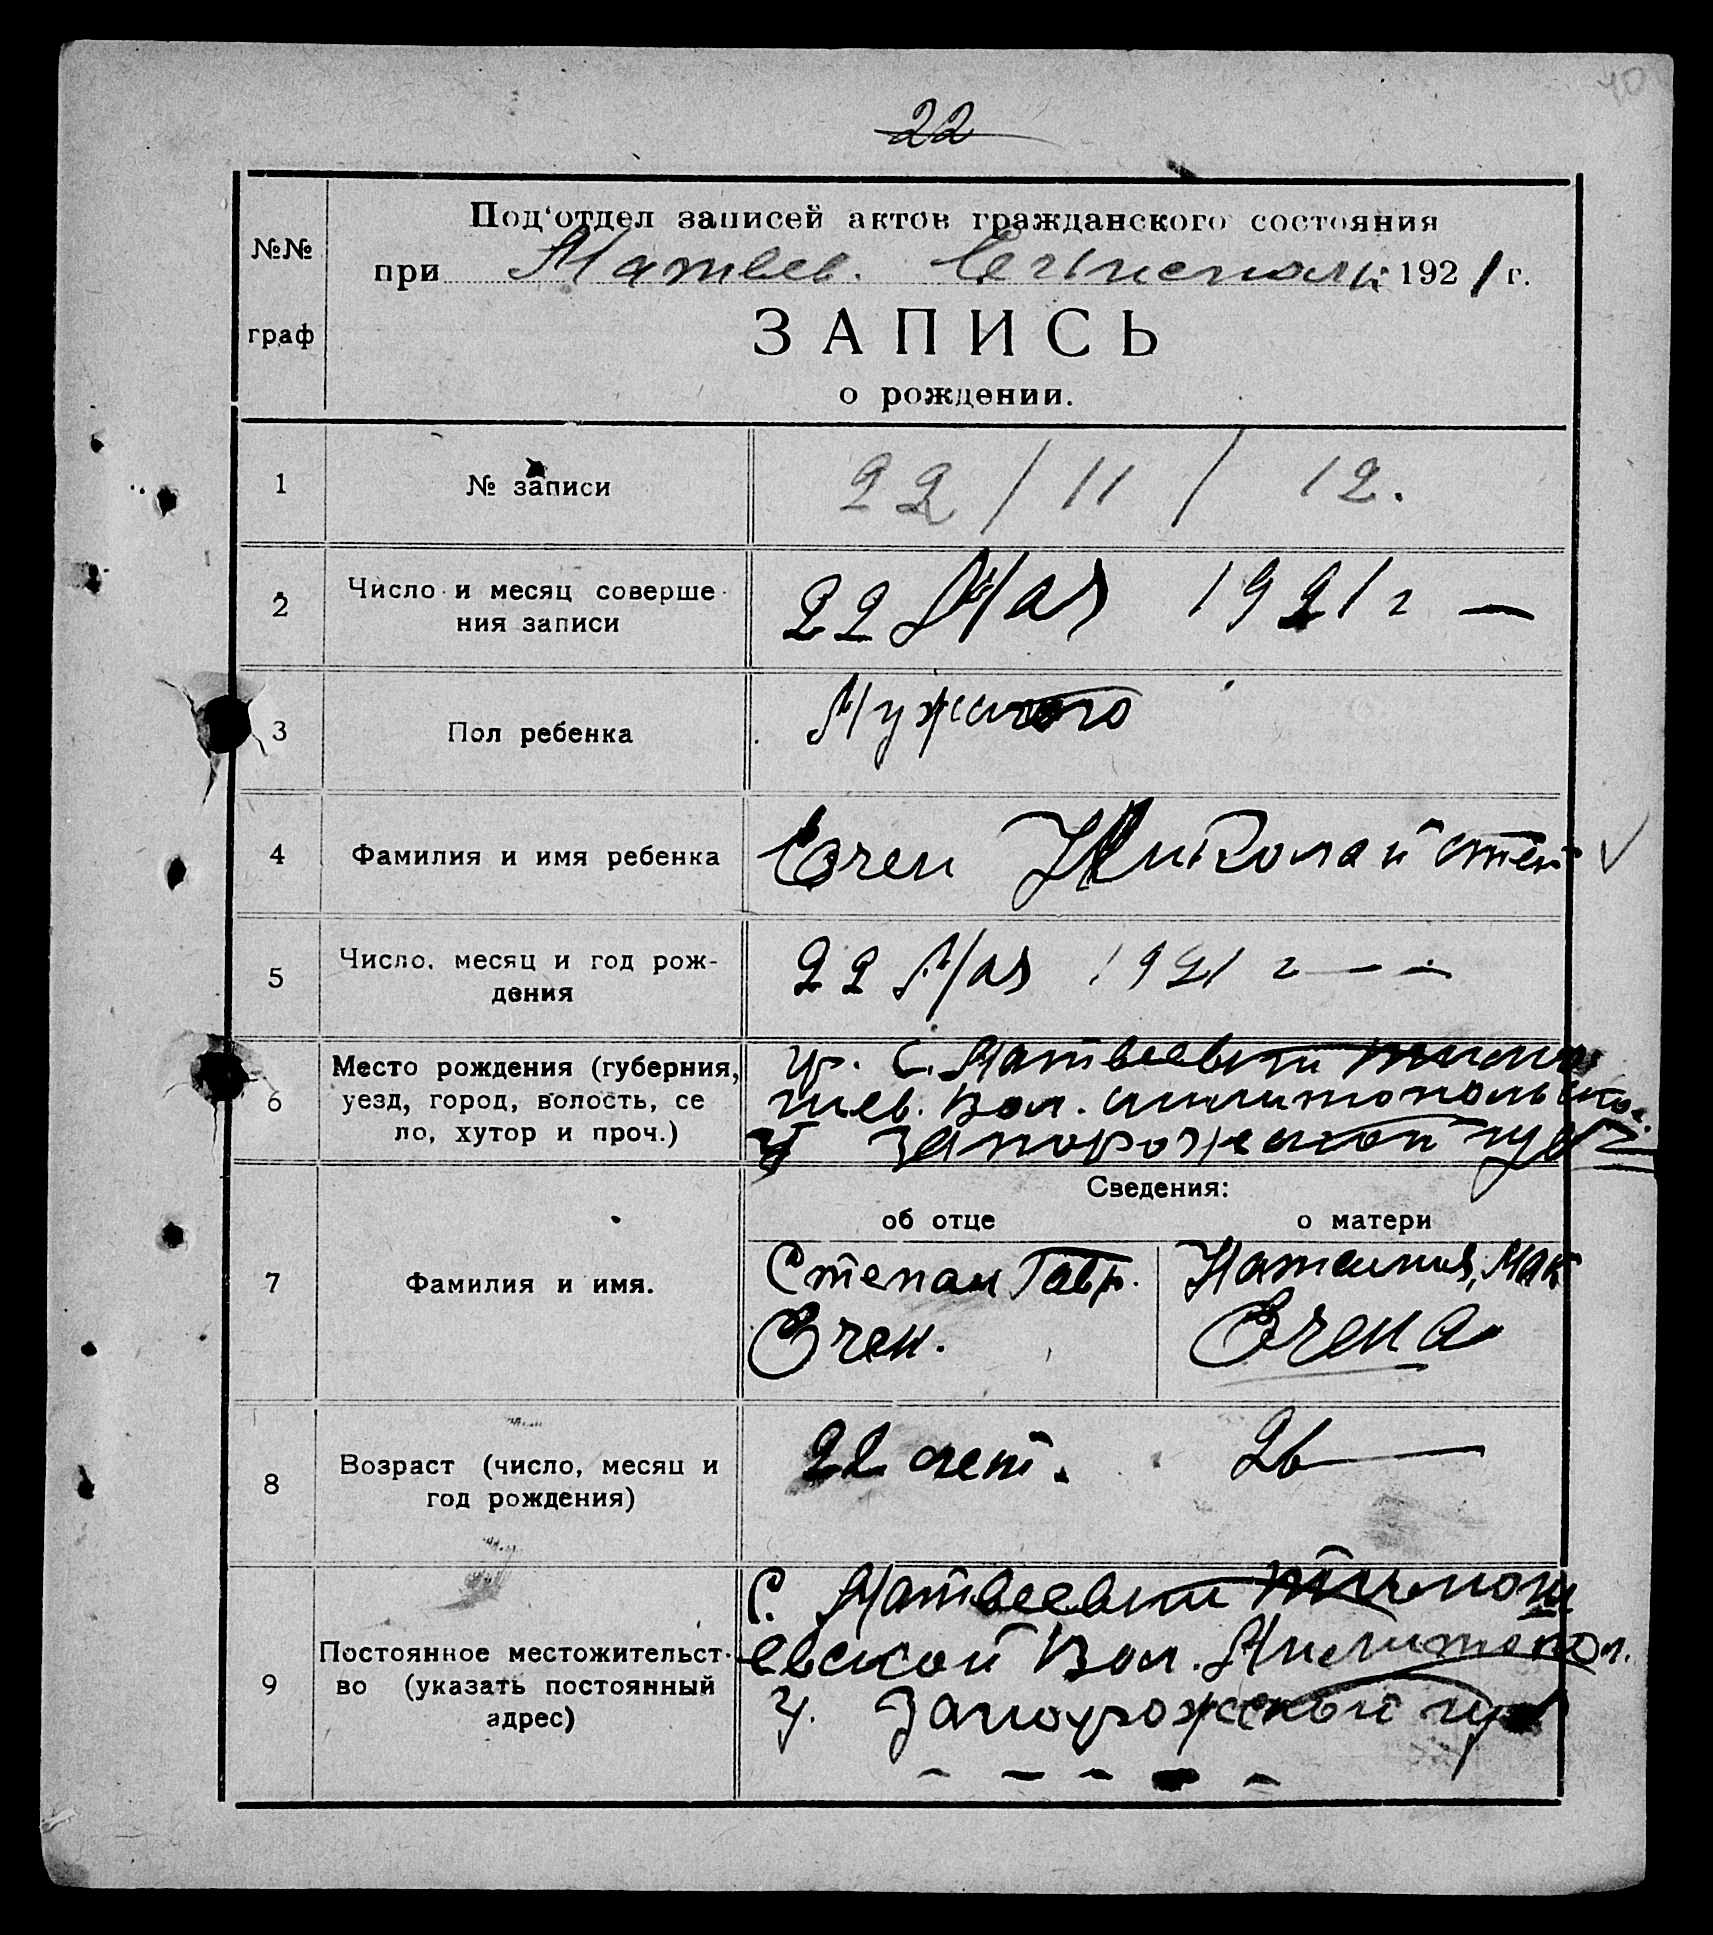 40
22
Под‘отдел записей актов гражданского состояния
№№
при Матвеев. 1921 г.
граф
ЗАПИСЬ
о рождении.
1 № записи 22 / 11 / 12.
2 Число и месяц соверше-
ния записи
22 Мая 1921 г —
3 Пол ребенка Мужского
4 Фамилия и имя ребенка Ечен Николай степ
5 Число, месяц и год рож-
дения
22 Мая 1921 г — -
6 Место рождения (губерния,
уезд, город, волость, се
ло, хутор и проч.)
гр. С. Матвеевки тимо
шев. Вол. милитопольского
у Запорожской губ
Сведения:
об отце о матери
7 Фамилия и имя.
Степан Гавр. Наталия, Мак
Эчен. Эчена
8 Возраст (число, месяц и
год рождения)
22 лет. 26 —
9 Постоянное местожительст-
во (указать постоянный
адрес)
С. Матвеевки тимош
евской Вол. Милитопол.
у. Запорожской губ
- - - - -